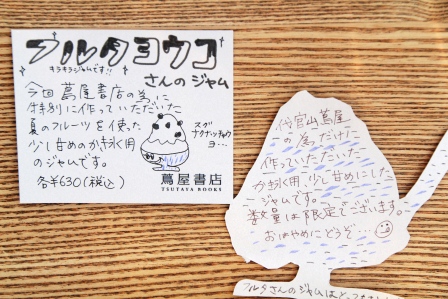 フルタヨウコ
キラキラジャムです!!
さんのジャム
今回蔦屋書店の為に
特別に作っていただいた
夏のフルーツを使った
少し甘めのかき氷用
のジャムです。
各¥630(税込)
スグ
ナクナッチャウ
ヨ…
蔦屋書店
TSUTAYA BOOKS
代官山蔦屋
の為だけに
作っていただいた
かき氷用、少し甘めにした
ジャムです。
数量は限定でございます。
おはやめにどうぞ…
フルタさんのジャムは